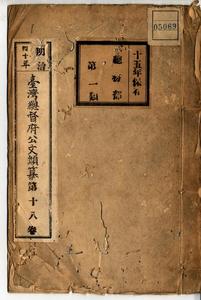 05069
十五年保存
總務部
第一類
明治
四十年
臺灣總督府公文類纂第十八卷